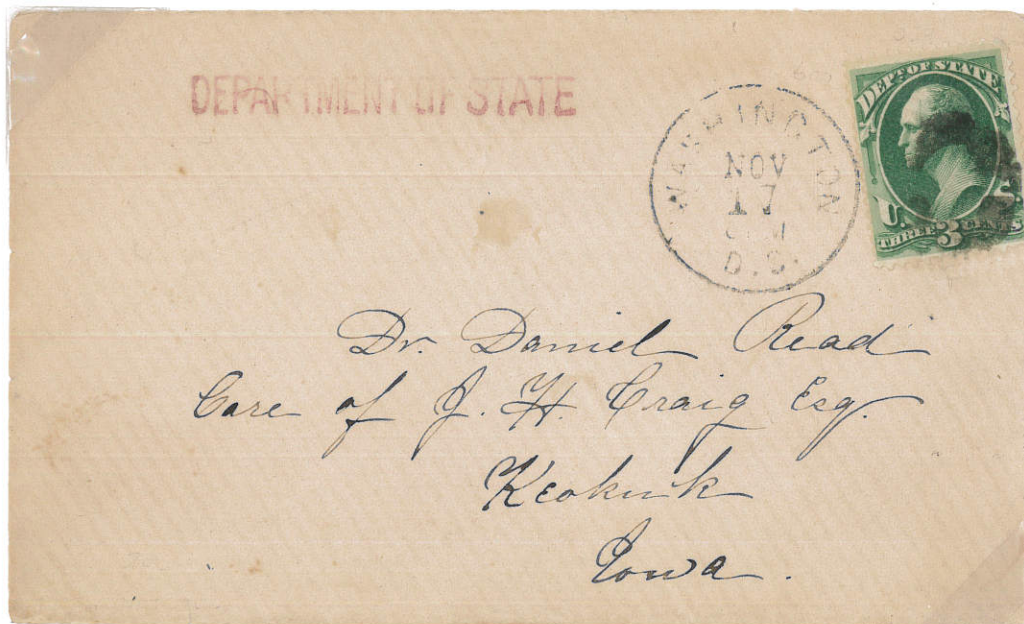 DEPARTMENT OF STATE
WASHINGTON
NOV
17
D.C.
DEPT. OF STATE
U. S.
THREE 3 CENTS
Dr. Daniel Read
Care of J. H. Craig Esq.
Keokuk
Iowa.